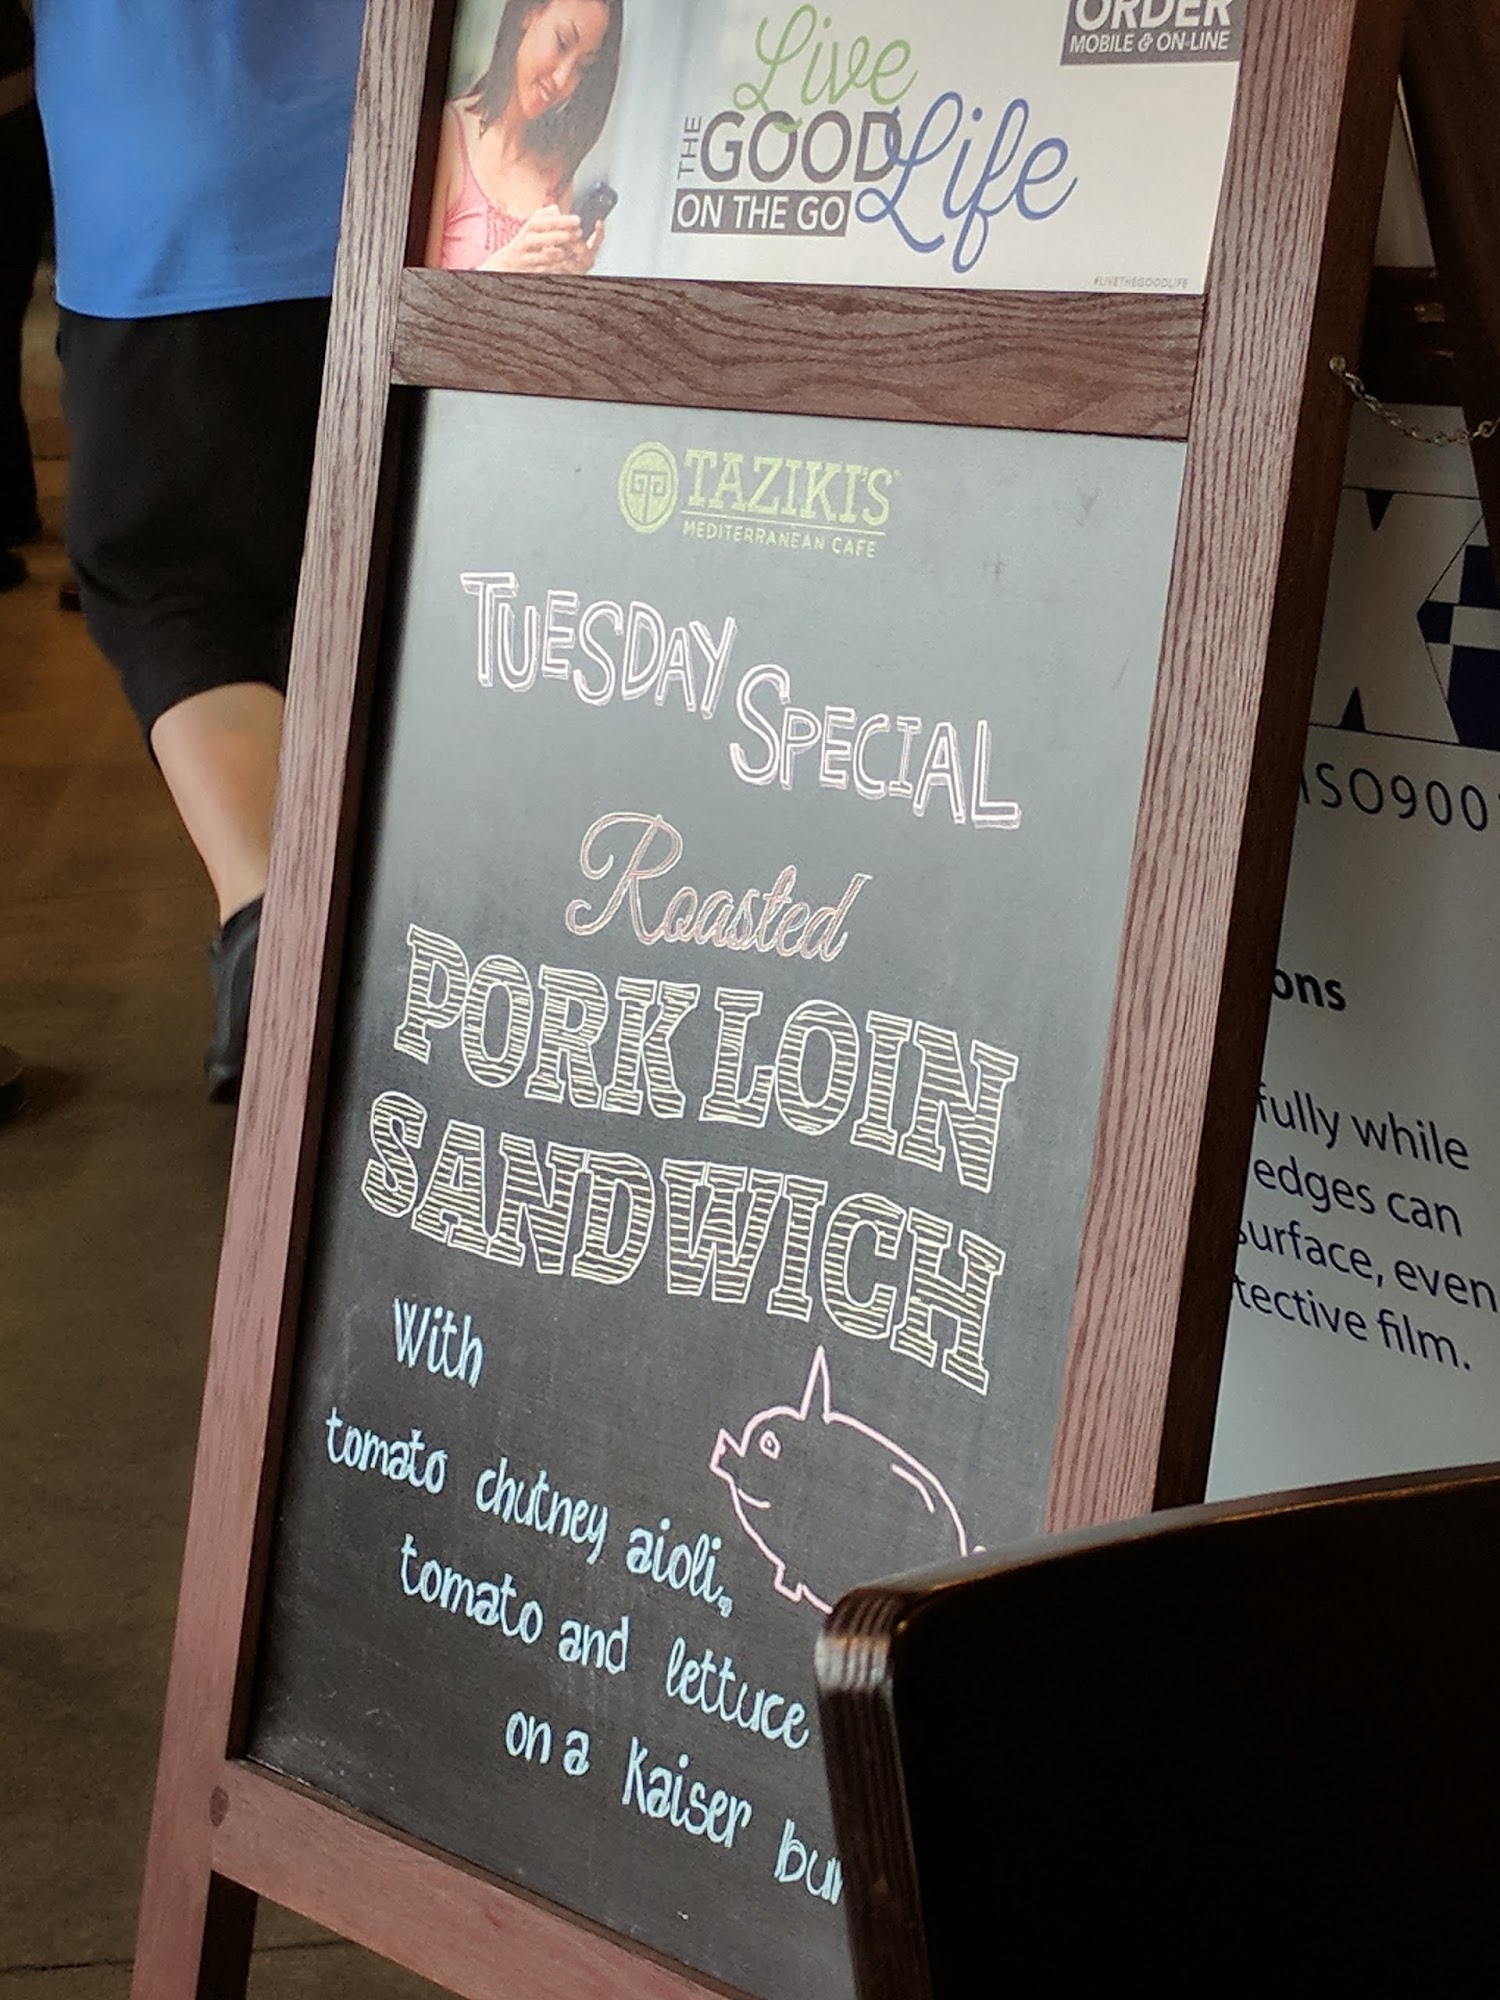 ORDER
MOBILE & ON-LINE
Live
THE GOOD Life
ON THE GO
#LIVETHEGOODLIFE
TAZIKI'S
MEDITERRANEAN CAFE
TUESDAY SPECIAL
Roasted
PORK LOIN
SANDWICH
With
tomato chutney aioli,
tomato and lettuce
on a Kaiser
ISO900
ons
fully while
edges can
surface, even
tective film.